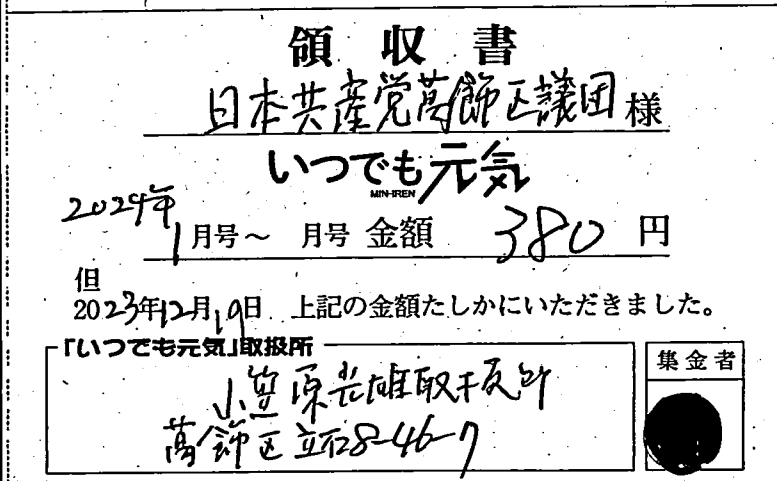 領収書
日本共産党葛飾区議団 様
いつでも元気
MIN-IREN
2024年
1月号～ 月号 金額 380 円
但
2023年12月19日 上記の金額たしかにいただきました。
「いつでも元気」取扱所
集金者
小笠原光雄取扱所
葛飾区立石8-46-7